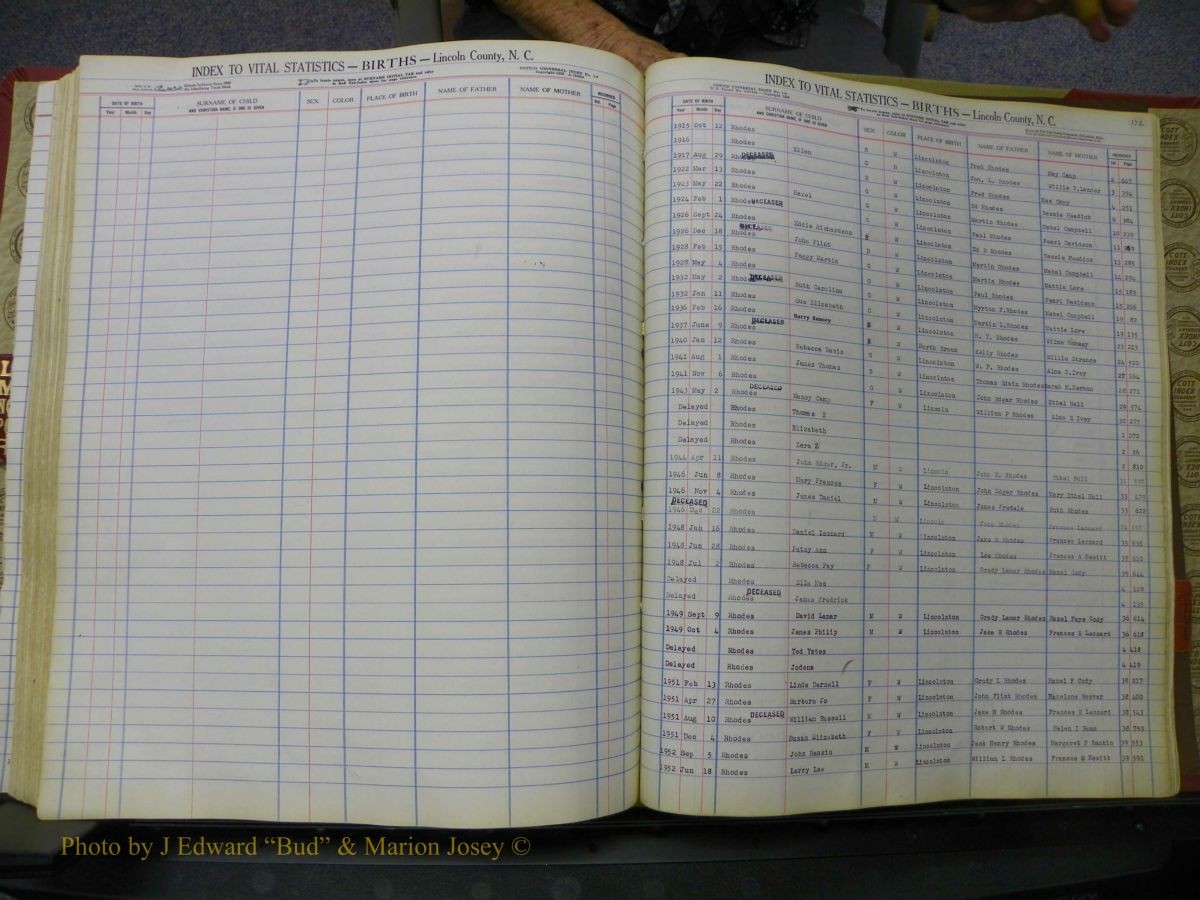 INDEX TO VITAL STATISTICS — BIRTHS — Lincoln County, N. C.
DATE OF BIRTH
Year Month Day
SURNAME OF CHILD
AND CHRISTIAN NAME, IF ONE IS GIVEN
SEX COLOR PLACE OF BIRTH NAME OF FATHER NAME OF MOTHER
RECORDED
Vol. Page
INDEX TO VITAL STATISTICS — BIRTHS — Lincoln County, N. C.
DATE OF BIRTH
Year Month Day
SURNAME OF CHILD
AND CHRISTIAN NAME, IF ONE IS GIVEN
SEX COLOR PLACE OF BIRTH NAME OF FATHER NAME OF MOTHER
1915 Oct 12 Rhodes B W Lincolnton Fred Rhodes May Camp 2 667
1916 Rhodes Ellen G W Lincolnton Jno. L. Rhodes Willie V. Lander 3 394
1917 Aug 29 DECEASED Lincolnton Fred Rhodes Mae Camp 4 251
1922 Mar 13 Rhodes G W Lincolnton Ed Rhodes Bessie Hendick 9 384
1923 May 22 Rhodes Hazel G W Lincolnton Martin Rhodes Mabel Campbell 10 239
1924 Feb 1 Rhodes DECEASED G W Lincolnton Paul Rhodes Pearl Davidson 11
1926 Sept 24 Rhodes W Lincolnton Ed R Rhodes Bessie 13 285
1926 Dec 18 Rhodes DECEASED Eddie Richardson W Lincolnton Martin Rhodes Mabel Campbell 14 294
1928 Feb 15 Rhodes John Flint B W Lincolnton Martin Rhodes Mattie Lore 15 189
1928 May 4 Rhodes Peggy Martin G W Lincolnton Paul Rhodes Pearl Davidson 15 206
1932 May 2 Rhodes DECEASED G W Lincolnton Myrton F. Rhodes Mabel Campbell 19 82
1932 Jan 11 Rhodes Ruth Carolina G W Lincolnton Martin L. Rhodes Mattie Lore 19 135
1936 Feb 16 Rhodes Sue Elizabeth G W Lincolnton H. Y. Rhodes Wilma 23 213
1937 June 9 Rhodes DECEASED Harry Ramsey W Lincolnton Kelly Rhodes Willie Strange 24 520
1940 Jan 12 Rhodes W North Brook W. P. Rhodes Alna S. Ivey 27 184
1941 Aug 1 Rhodes Rebecca Davis G W Lincolnton Thomas Edwin Rhodes Sarah H. Harmon 28 271
1941 Nov 6 Rhodes James Thomas B W Lincolnton John Edgar Rhodes Ethel Hall 28 574
1943 May 2 Rhodes DECEASED G W Lincolnton William P Rhodes Alma S Ivey 30 277
Delayed Rhodes Nancy Camp F W Lincoln
Delayed Rhodes Thomas E 1 272
Delayed Rhodes Elizabeth 2 26
Delayed Rhodes Zera Z 2 810
1944 Apr 11 Rhodes John Edgar, Jr. M Lincoln John E. Rhodes Ethel Hull 31 597
1946 Jun 8 Rhodes Mary Frances F W Lincolnton John Edgar Rhodes Mary Ethel Hull 33 479
1946 Nov 4 Rhodes James Daniel M W Lincolnton James Fredale Ruth Rhodes 33 622
DECEASED
1946 Dec 22 Rhodes M W Lincoln Jake Rhodes Frances Leonard 34
1948 Jan 16 Rhodes Daniel Leonard M W Lincolnton Jake R Rhodes Frances Leonard 35 636
1948 Jun 28 Rhodes Patsy Ann F W Lincolnton Lee Rhodes Frances A Hewitt 35 610
1948 Jul 2 Rhodes Rebecca Fay F W Lincolnton Grady Lamar Rhodes Hazel Cody 35 644
Delayed Rhodes Ella Mae 4 129
Delayed Rhodes DECEASED James Fredrick 4 135
1949 Sept 9 Rhodes David Lamar M W Lincolnton Grady Lamar Rhodes Hazel Faye Cody 36 614
1949 Oct 4 Rhodes James Philip M W Lincolnton Jake R Rhodes Frances E Leonard 36 618
Delayed Rhodes Ted Yates 4 418
Delayed Rhodes Jodena 4 419
1951 Feb 13 Rhodes Linda Darnell F W Lincolnton Grady L Rhodes Hazel F Cody 38 217
1951 Apr 27 Rhodes Barbara Jo F W Lincolnton John Flint Rhodes Hazelone Weaver 38 400
1951 Aug 10 Rhodes DECEASED William Russell M W Lincolnton Jake R Rhodes Frances E Leonard 38 543
1951 Dec 4 Rhodes Susan Elizabeth F W Lincolnton Robert W Rhodes Helen I Dunn 38 759
1952 Sep 5 Rhodes John Rankin M W Lincolnton Jack Henry Rhodes Margaret P Rankin 39 553
1952 Jun 18 Rhodes Larry Lee M W Lincolnton William L Rhodes Frances Hewitt 39 591
Photo by J Edward “Bud” & Marion Josey ©